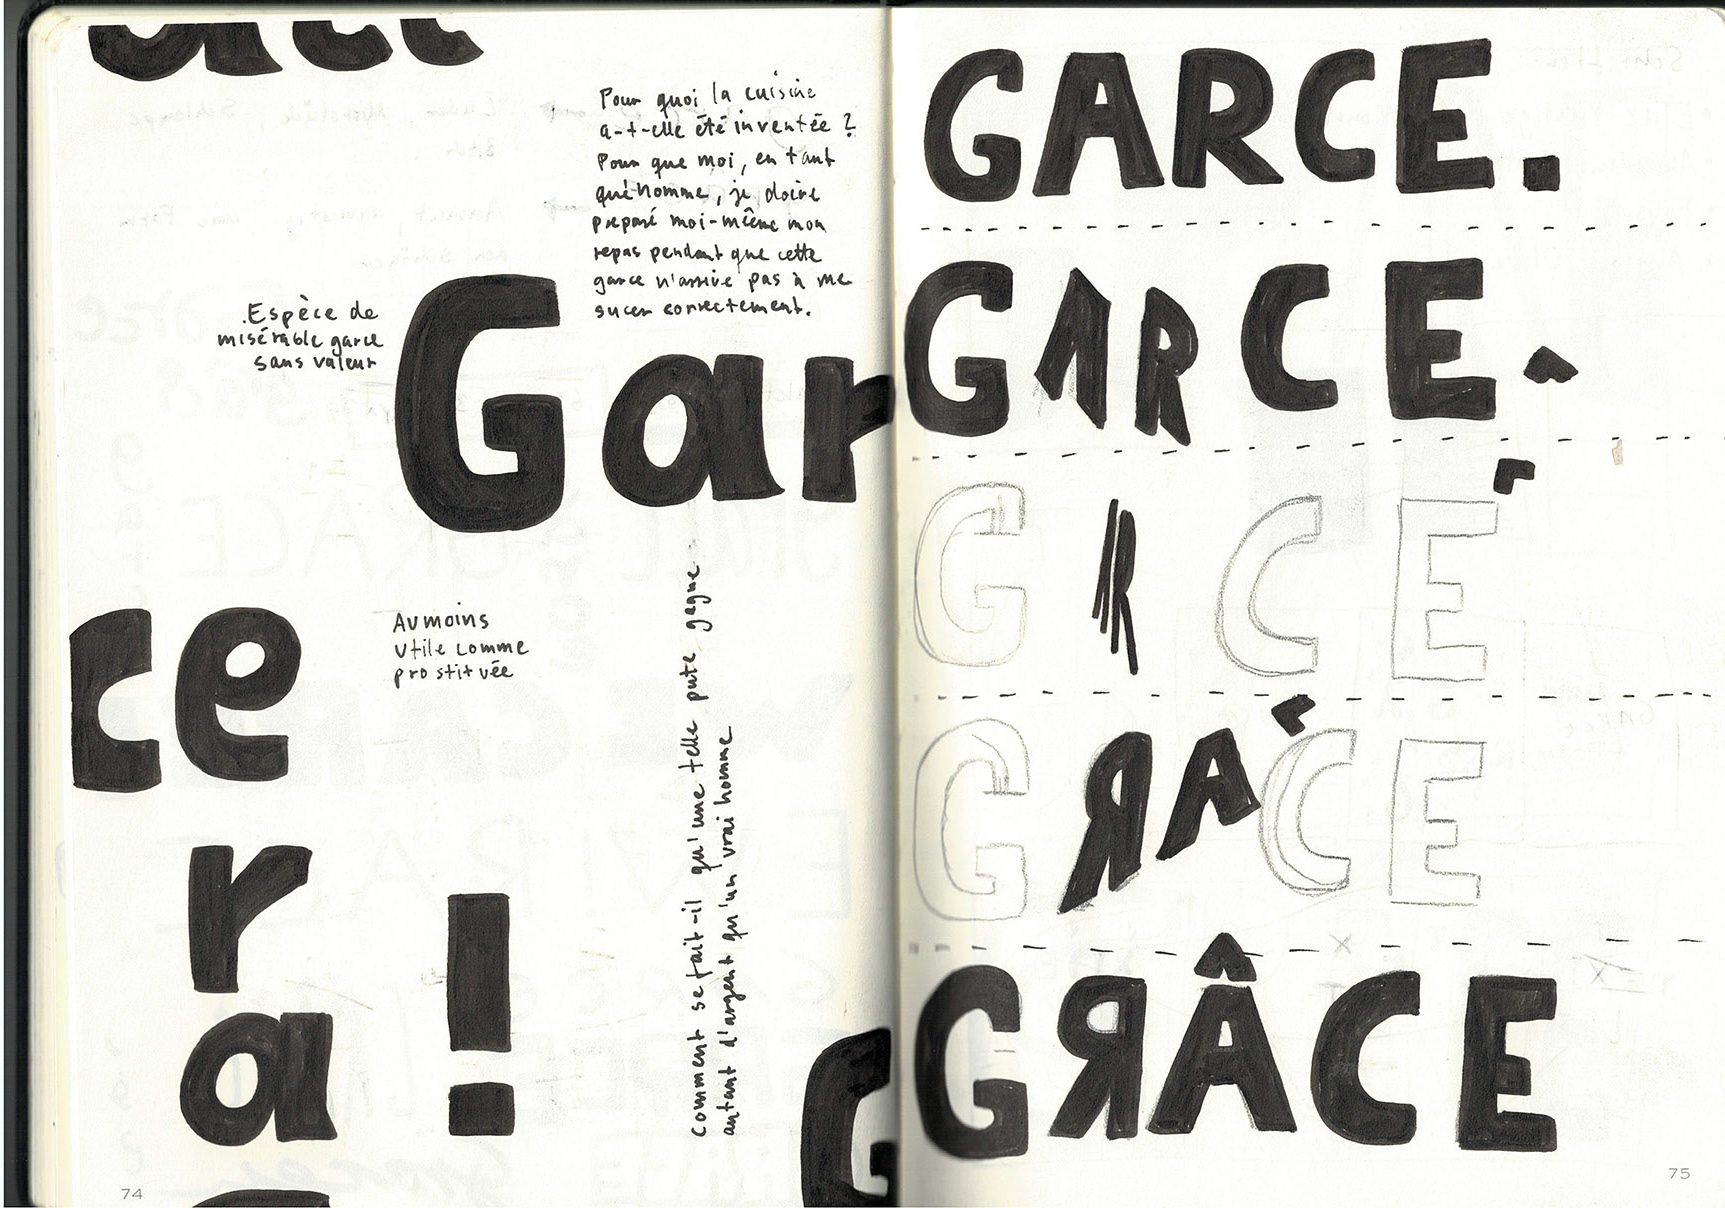 Pour quoi la cuisine
a-t-elle été inventée ?
Pour que moi, en tant
qué homme, je doive
preparé moi-même mon
repas pendant que cette
garce n'arrive pas à me
sucer correctement.
Espèce de
misérable garce
sans valeur
Gar
ce
Au moins
utile comme
prostituée
r
a
!
Comment se fait-il qu'une telle pute gagne
autant d'argent qu'un vrai homme
G
74
GARCE.
GARCE
G R C E
G R A C E
GRÂCE
75